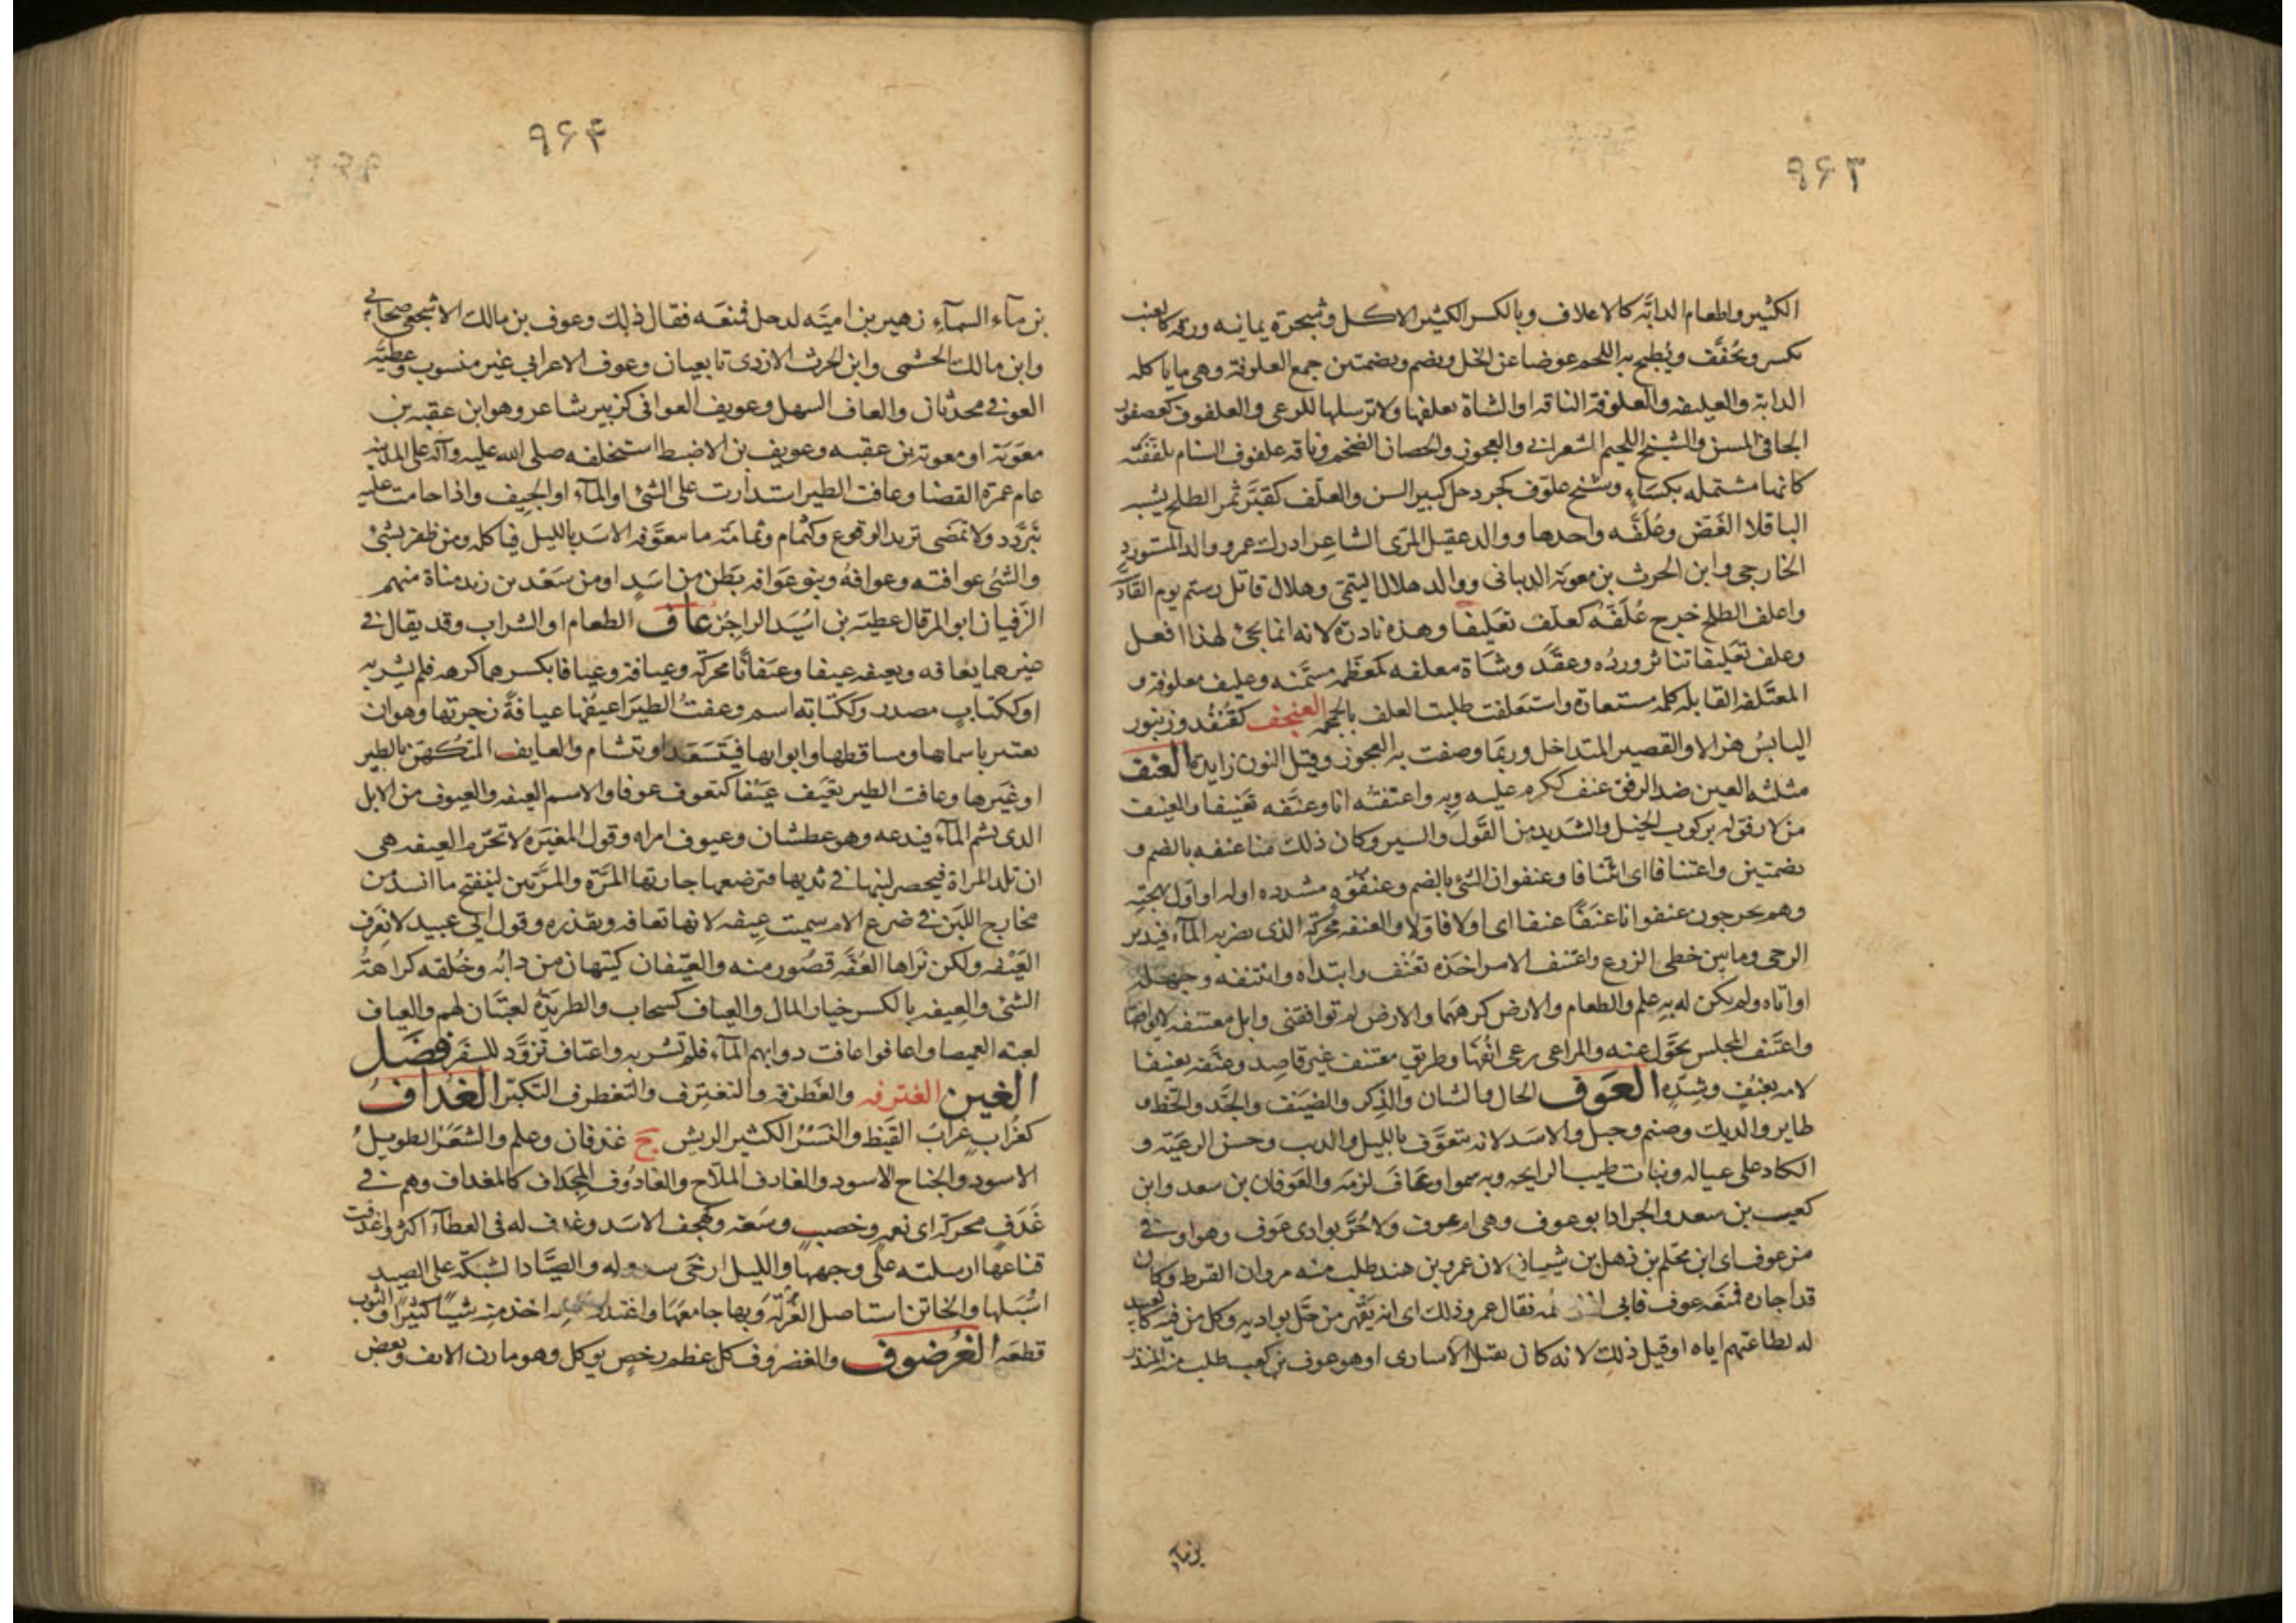 ۹۶۳
الكثير واطعام الدابّة كالاعلاف وبالكسر الكثير الاكل وشجرة يمانية ورقه كالعنب
يكبس ويجفّف ويُطبخ به اللحم عوضا عن الخل ويضم وبضمتين جمع العلوفة وهى ما ياكله
الدابة والعليفة والعلوفة الناقة او الشاة تعلفها ولا ترسلها للرعى والعلفوف كعصفور
الجافى المسن والشيخ اللحيم الشعرانى والعجوز والحصان الضخم وناقة علفوف السنام ملففته
كانها مشتمله بكساء وشيخ علّوف كجردحل كبير السن والعلّف كقبّر ثمر الطلح يشبه
الباقلا الغض وعُلّفه واحدها ووالد عقيل المرّى الشاعر ادرك عمر ووالد المستورد
الخارجى وابن الحرث بن معوية الذبيانى ووالد هلال التيمى وهلال قاتل رستم يوم القاد
واعلف الطلح خرج عُلّفه كعلّف تعليفا وهذه نادرة لانه انما يجئ لهذا افعل
وعلف تعليفا تناثر ورده وعقّد وشاة معلفه كمعظمه مسمّنه وعليف معلوفة و
المعتلفة القابلة كلمه مستعارة واستعلفت طلبت العلف بالحمحمه العنجف كقنفذ وزنبور
اليابس هزالا والقصير المتداخل وربما وصفت به العجوز وقيل النون زايدة العنف
مثلثه العين ضد الرفق عنف ككرم عليه وبه واعتنفته انا وعنّفه تعنيفا والعنيف
من لا رفق له بركوب الخيل والشديد من القول والسير وكان ذلك منا عنفه بالضم و
بضمتين واعتنافا اى ائتنافا وعنفوان الشئ بالضم وعنفوّه مشدده اوله او اول بهجته
وهم يخرجون عنفوانا عنفا عنفا اى اولا فاولا والعنفه محركة الذى يضربه الماء فيدير
الرحى وما بين خطى الزرع واعتنف الامر اخذه بعنف وابتداه وائتنفه وجهله
او اتاه ولم يكن له به علم والطعام والارض كرههما والارض لم توافقنى وابل معتنفه لا يوافقها
واعتنف المجلس تحوّل عنه والمراعى رعى انفها وطريق معتنف غير قاصد وعنّفه تعنيفا
لامه بعنف وشده العوف الحال والشان والذكر والضيف والجَد والحظ و
طاير والديك وصنم وجبل والاسد لانه يتعوّف بالليل والذيب وحسن الرعيّة و
الكاد على عياله ونبات طيب الرايحه وبه سموا وعاف لزمه والعوفان بن سعد وابن
كعب بن سعد والجراد ابو عوف وهى ام عوف ولا حُرّ بوادى عوف وهو اوفى
من عوف اى ابن محلّم بن ذهل بن شيبان لان عمرو بن هند طلب منه مروان القرظ وكان
قد اجاره فمنعه عوف فابى فقال عمرو ذلك اى انه يقهر من حلّ بواديه وكل من فيه كالعبد
له لطاعتهم اياه او قيل ذلك لانه كان يقتل الاسارى او هو عوف بن كعب طلب منه المنذر
بن ماء
۹۶۴
بن ماء السماء زهير بن اميّه لدحل فمنعه فقال ذلك وعوف بن مالك الاشجعى صحابى
وابن مالك الجشمى وابن الحرث الازدى تابعيان وعوف الاعرابى غير منسوب وعطيّه
العوفى محدثان والعاف السهل وعويف القوافى كزبير شاعر وهو ابن عقبه بن
معوية او معوية بن عقبه وعويف بن الاضبط استخلفه صلى الله عليه وآله على المدينه
عام عمرة القضا وعافت الطير استدارت على الشئ او الماء او الجيف واذا حامت عليه
تتردد ولا تمضى تريد الوقوع وكثمام وثمامة ما يتعوّفه الاسد بالليل فياكله ومن ظفر بشئ
والشئ عوافته وعوافه وبنو عوافه بطن من اسد او من سعد بن زيد مناة منهم
الزفيان ابو المرقال عطية بن اسيد الراجز عاف الطعام او الشراب وقد يقال فى
غيرهما يعافه ويعيفه عيفا وعيفانا محركة وعيافة وعيافا بكسرهما كرهه فلم يشربه
او ككتاب مصدر وككتابه اسم وعفتُ الطير اعيفها عيافةً زجرتها وهو ان
تعتبر باسماها ومساقطها وانوائها فتتسعّد او تتشام والعايف المتكهّن بالطير
او غيرها وعافت الطير تعيف عيفا كتعوف عوفا والاسم العيفه والعيوف من الابل
الذى يشم الماء فيدعه وهو عطشان وعيوف امراه وقول المغيره لا تحرّم العيفه هى
ان تلد المراة فيحصر لبنها فى ثديها فترضعها جارتها المرّة والمرّتين لينفتح ما انسد من
مخارج اللبن فى ضرع الام سميت عيفه لانها تعافه وتقذره وقول ابى عبيد لا نعرف
العَيفه ولكن نراها العُفّه قصور منه والعيّفان كتيّهان من دابه وخلقه كراهةُ
الشئ والعيفه بالكسر خيار المال والعياف كسحاب والطريدة لعبتان لهم والعياف
لعبه الغميصا واعافوا عافت دوابهم الماء فلم تشربه واعتاف تزوّد للسفر فصل
الغين الغترفه والغطرفه والتغترف والتغطرف التكبّر الغداف
كغراب غراب القيظ والنسر الكثير الريش ج غدفان وعلم والشعر الطويل
الاسود والجناح الاسود والغادف الملّاح والغادوف المجداف كالمغداف وهم فى
غَدَف محركة اى نعمه وخصب وسعه وكهجف الاسد وغدف له فى العطاء اكثر واغدفت
قناعها ارسلته على وجهها والليل ارخى سدوله والصيّاد الشبكة على الصيد
اسبلها والخاتن استاصل الغرلة وبها جامعها واغتدف اخذ منه شيئا كثيرا والثوب
قطعه الغرضوف والغضروف كل عظم رخص يوكل وهو مارن الانف وبعض